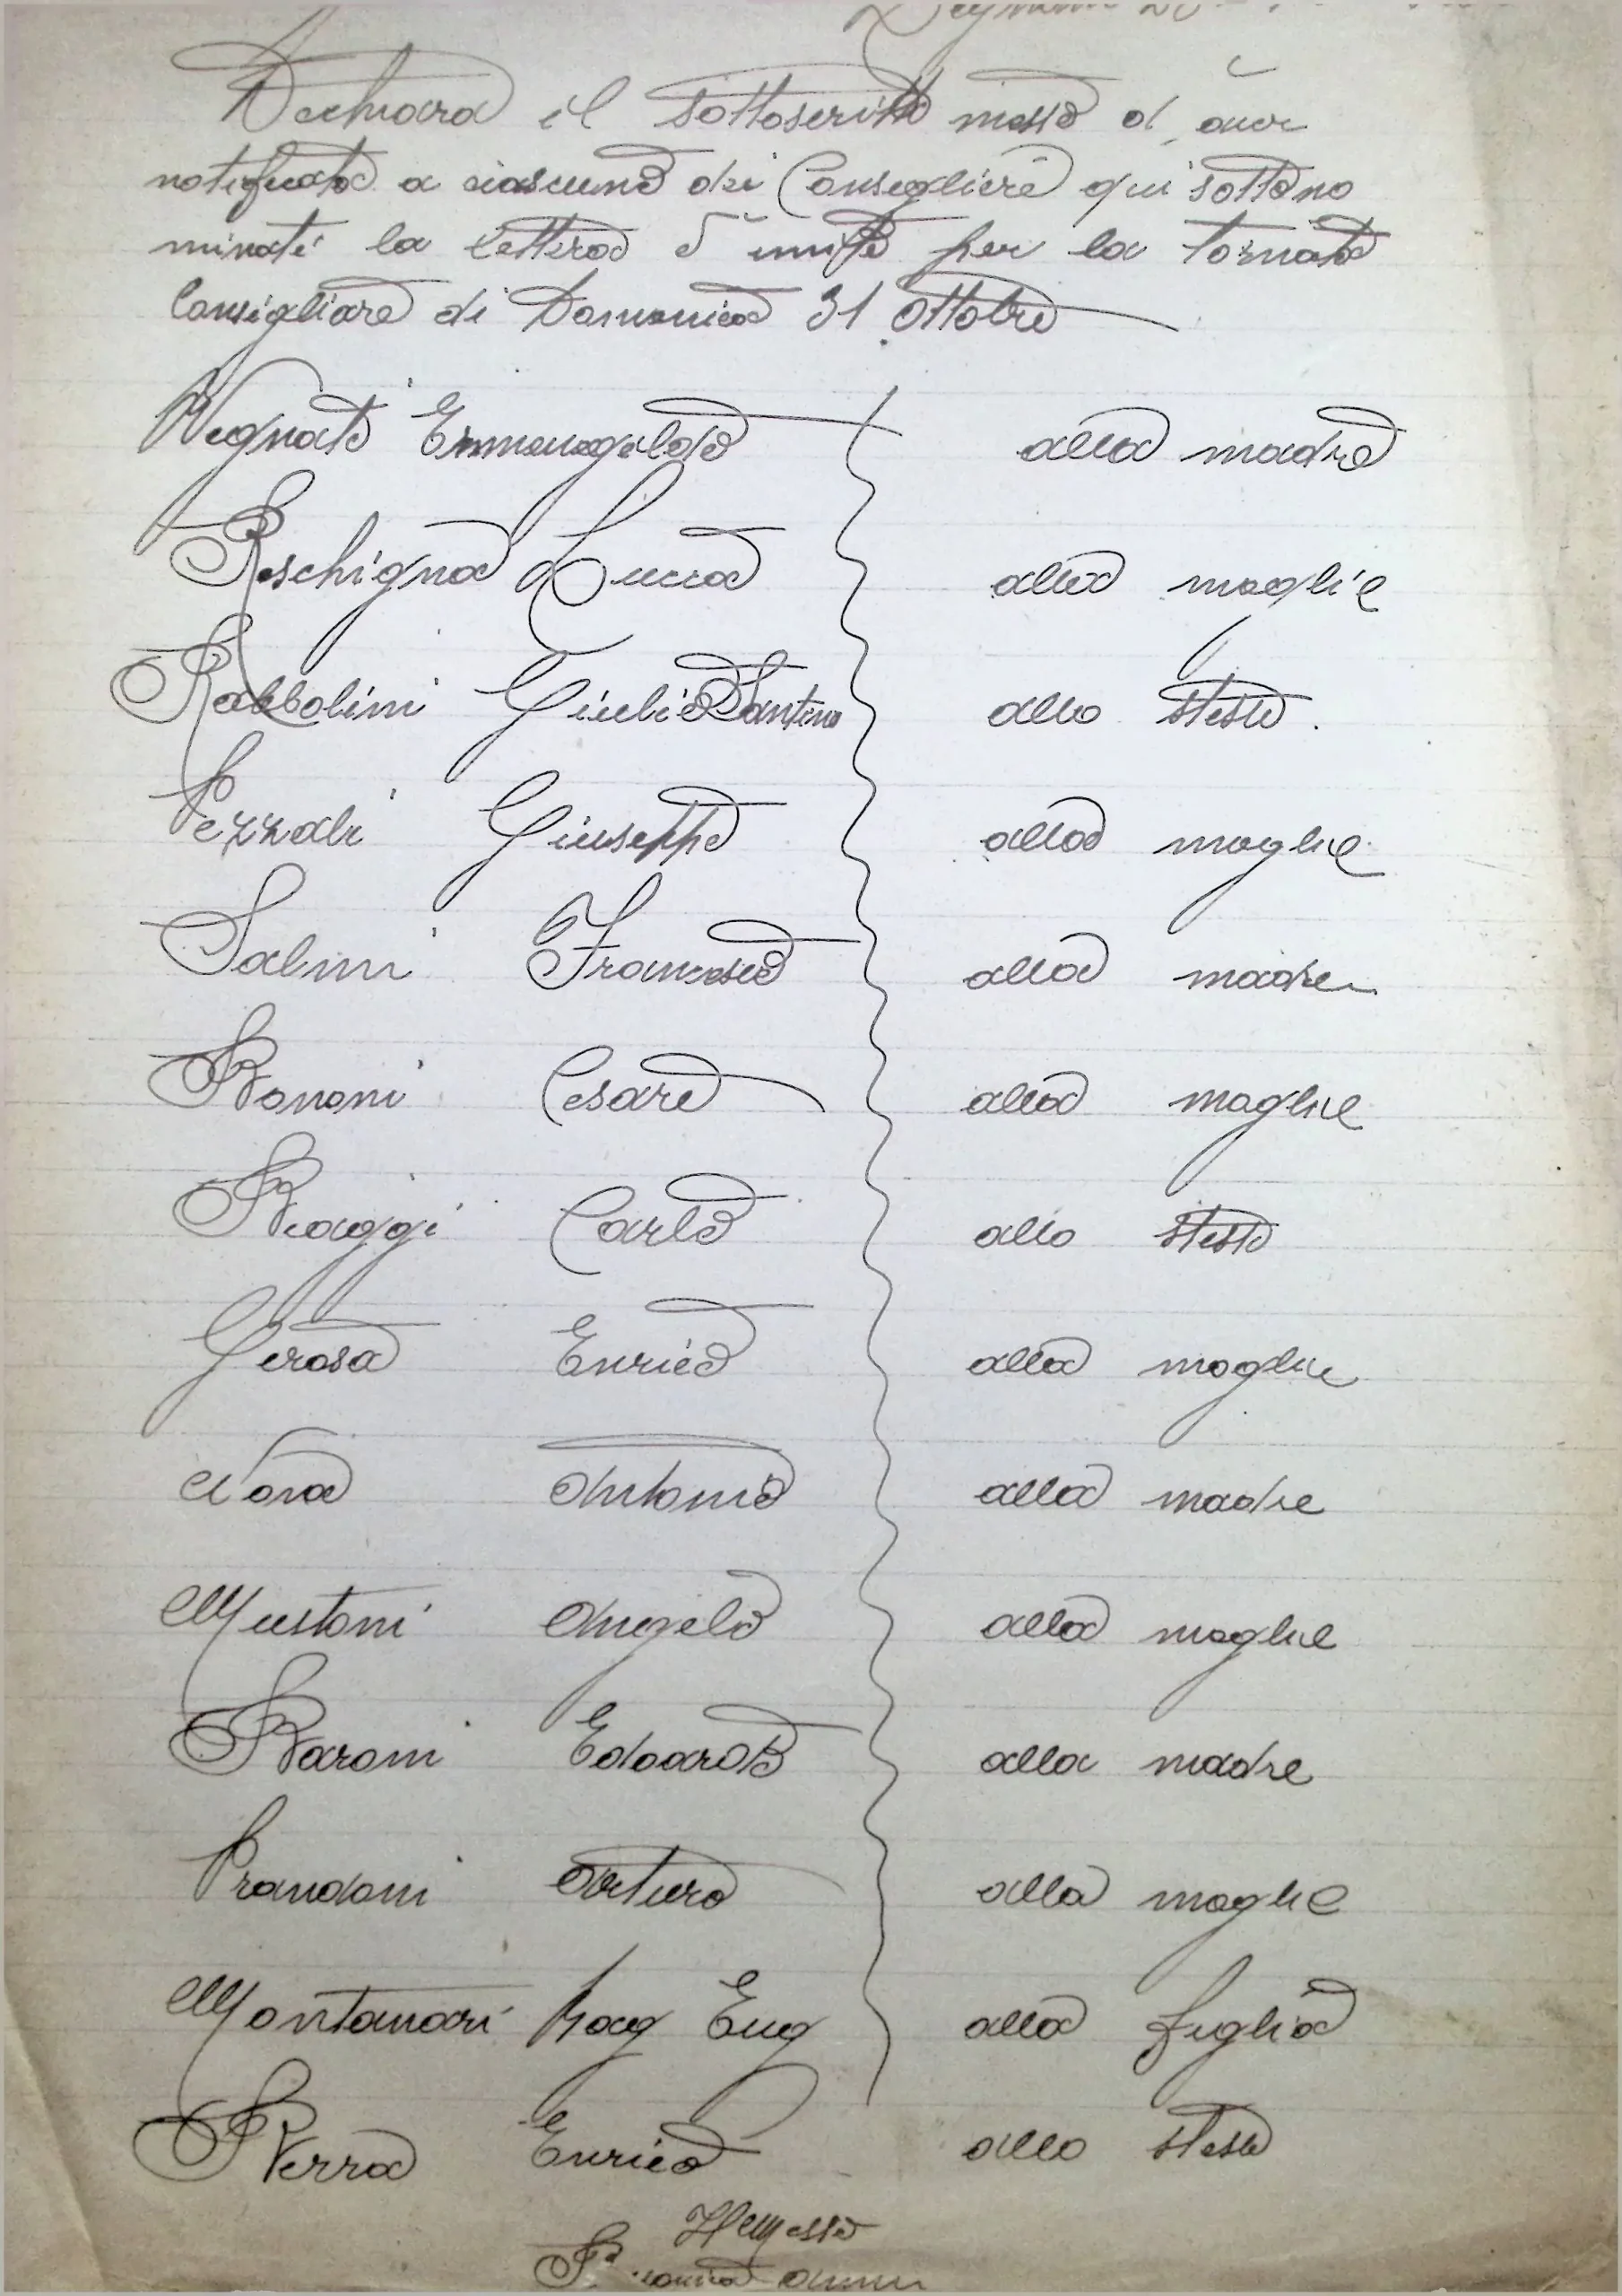 Dichiara il sottoscritto messo d' aver
notificato a ciascuno dei Consiglieri qui sotto no
minati la lettera d' invito per la tornata
Consigliare di Domenica 31 Ottobre
Vegnati Ermenegildo alla madre
Reschigna Lucca alla moglie
Rabbolini Giulio Santino allo stesso.
Pezzali Giuseppe alla moglie
Salmi Francesco alla madre
Bononi Cesare alla moglie
Biaggi Carlo allo stesso
Gerosa Enrico alla moglie
Nova Antonio alla madre
Mustoni Angelo alla moglie
Baroni Edoardo alla madre
Prandoni Arturo alla moglie
Montanari Rag Eug alla figlia
Verra Enrico allo stesso
Il Messo